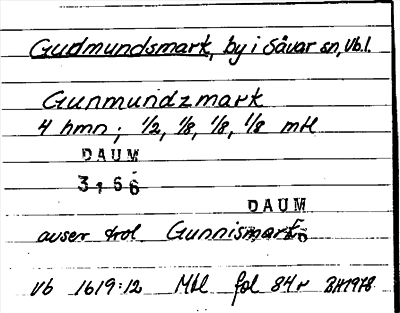 Gudmundsmark, by i Sävar sn, Vb.l.
Gunmundzmark
4 hmn; 1/2, 1/8, 1/8, 1/8 mtl
DAUM
3166
DAUM
avser trol. Gunnismark
Vb 1619:12 Mtl fol 84r BH1978